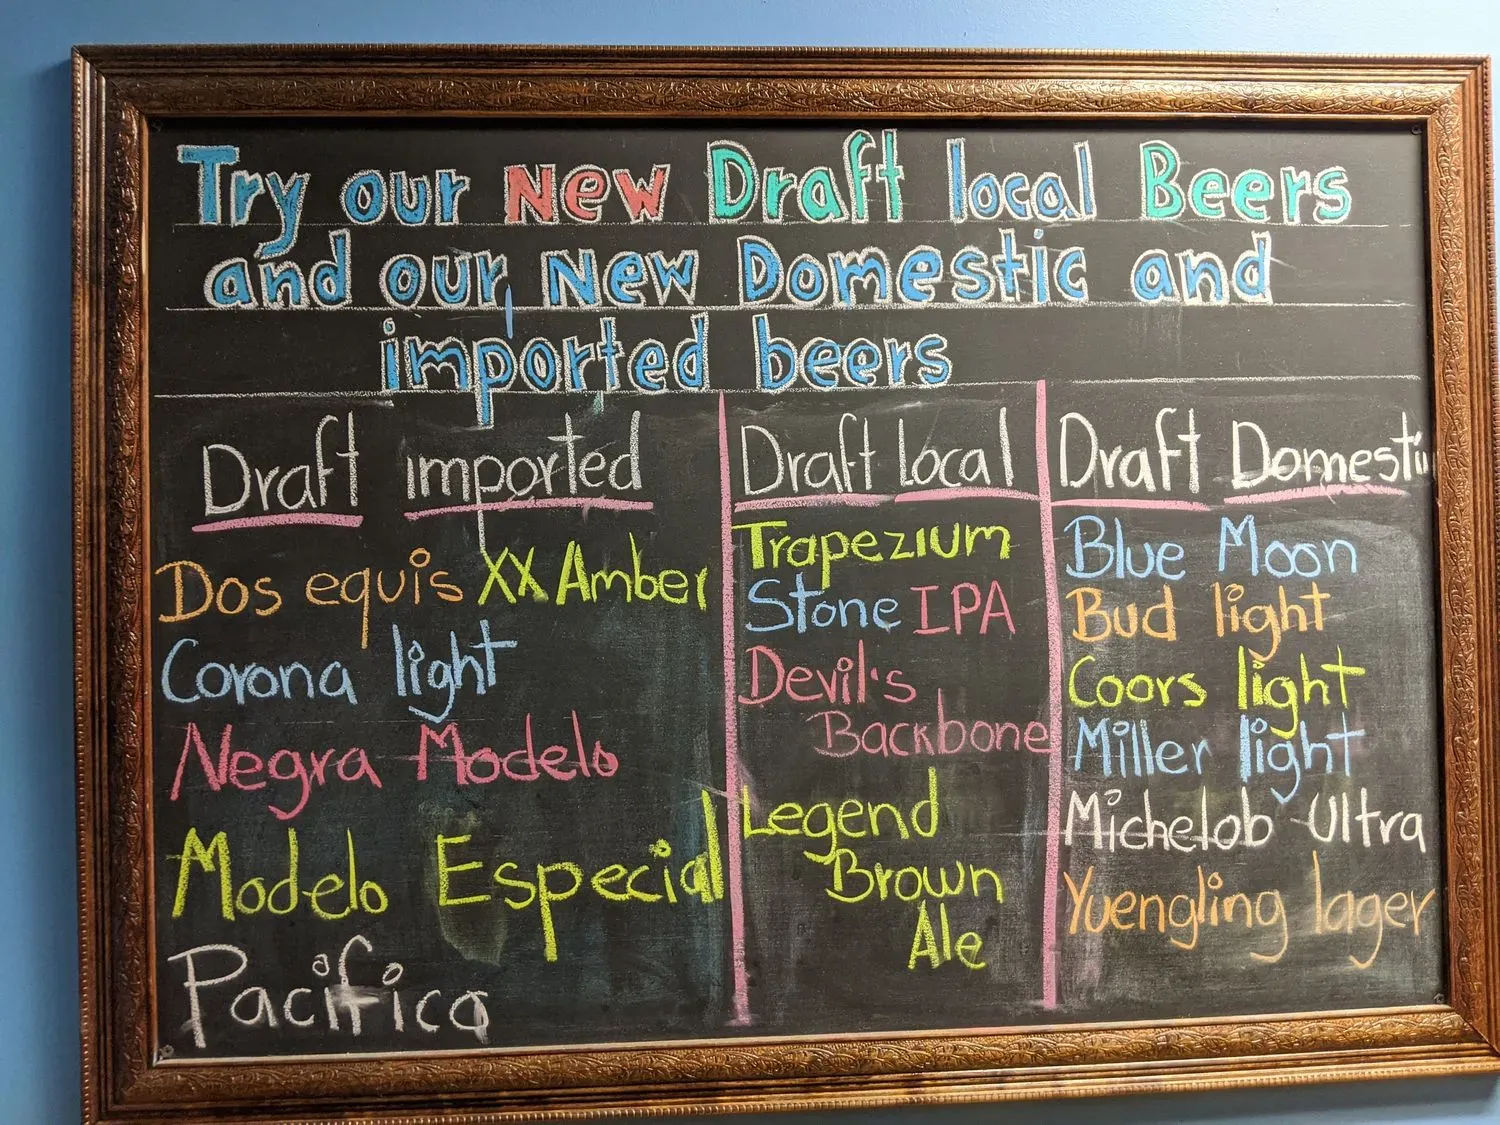 Try our New Draft local Beers
and our New Domestic and
imported beers
Draft imported
Dos equis XX Amber
Corona light
Negra Modelo
Modelo Especial
Pacifico
Draft local
Trapezium
Stone IPA
Devil's
Backbone
Legend
Brown
Ale
Draft Domestic
Blue Moon
Bud light
Coors light
Miller light
Michelob Ultra
Yuengling lager